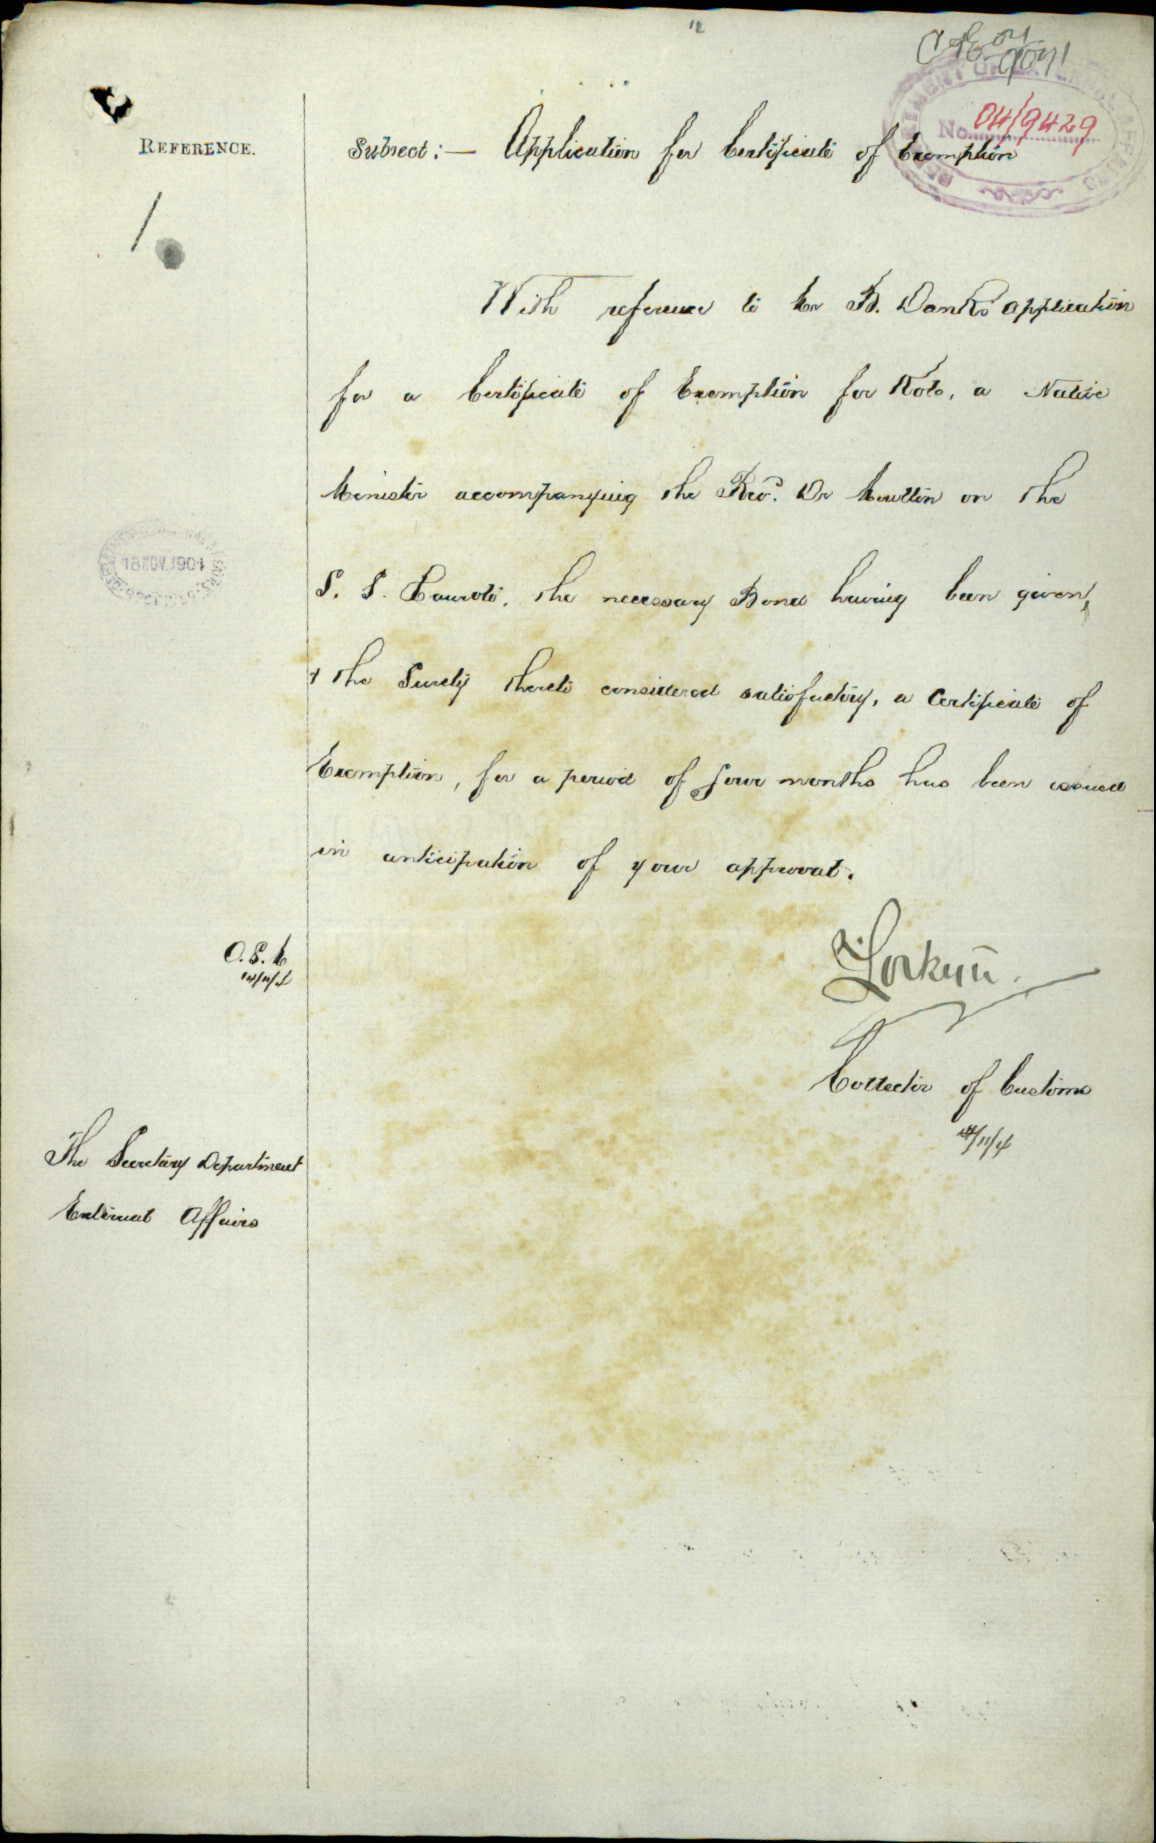 REFERENCE.
04/9429
No.
Subject:— Application for Certificate of Exemption
With reference to Mr B. Danks application
for a Certificate of Exemption for Kolo, a Native
Minister accompanying the Revd. Dr Moulton on the
S. S. Hauroto, the necessary Bond having been given,
& the Surety thereto considered satisfactory, a Certificate of
Exemption, for a period of four months has been issued
in anticipation of your approval.
18 NOV. 1904
O.S.M
Collector of Customs
The Secretary Department
External Affairs